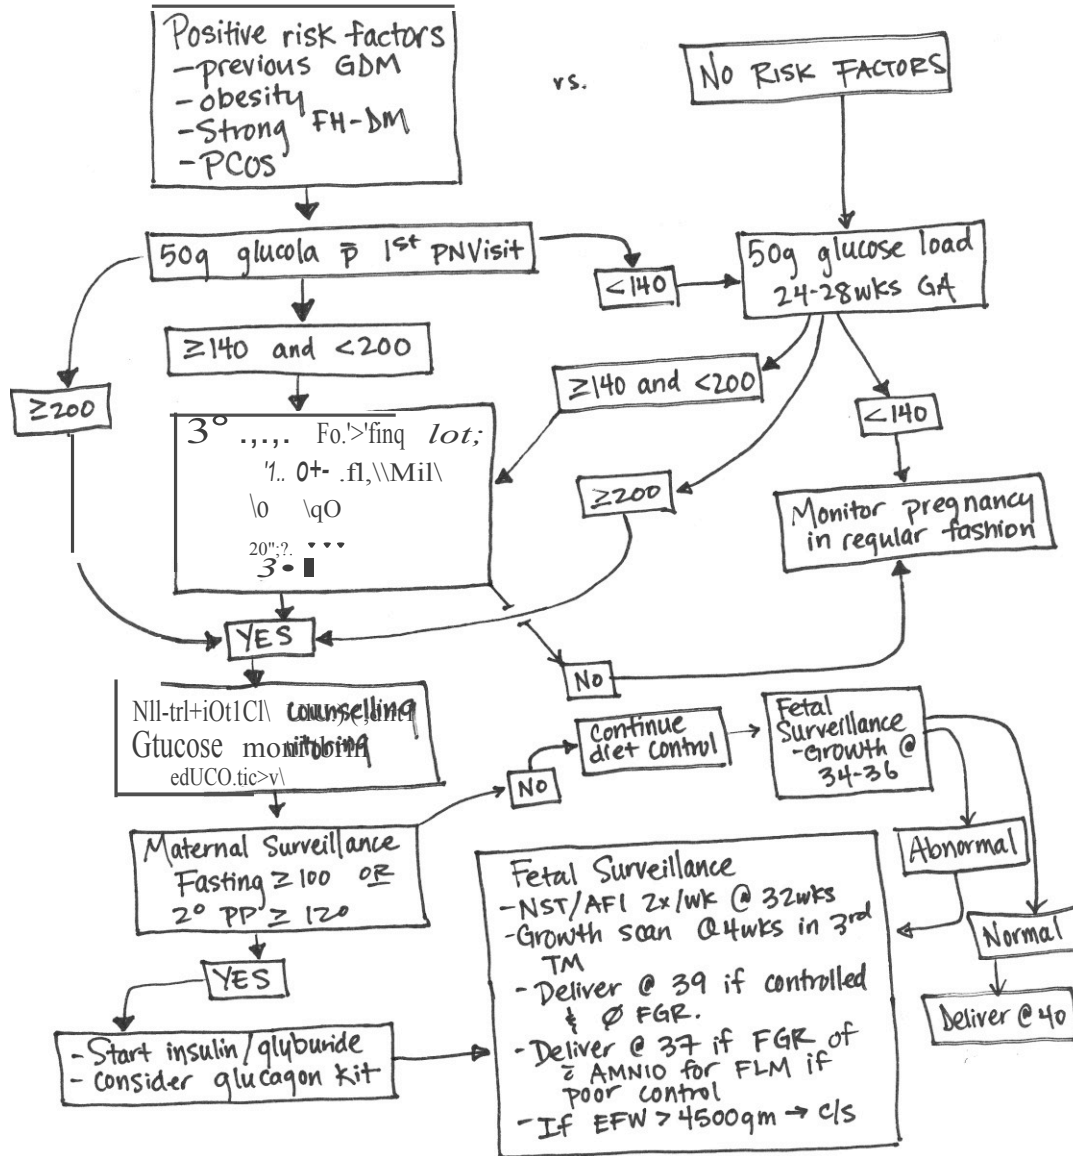 Positive risk factors
-previous GDM
-obesity
-Strong FH-DM
-PCOS
vs.
NO RISK FACTORS
50g glucola p̄ 1st PNVisit
<140
50g glucose load
24-28wks GA
≥140 and <200
≥200
≥140 and <200
<140
3° .,.,. Fo.'>'finq lot;
'1.. 0+- .fl,\\Mil\
\0 \qO
20";?.
3•
≥200
Monitor pregnancy
in regular fashion
YES
NO
Nll-trl+iOt1Cl\ counselling
Gtucose monitoring
edUCO.tic>v\
NO
continue
diet control
Fetal
Surveillance
-Growth @
34-36
Maternal Surveillance
Fasting ≥100 OR
2° PP ≥ 120
YES
-Start insulin/glyburide
- Consider glucagon kit
Fetal Surveillance
-NST/AFI 2x/wk @ 32wks
-Growth scan Q4wks in 3rd
TM
-Deliver @ 39 if controlled
& Ø FGR.
-Deliver @ 37 if FGR of
c̄ AMNIO for FLM if
poor control
-If EFW > 4500gm → c/s
Abnormal
Normal
Deliver @ 40